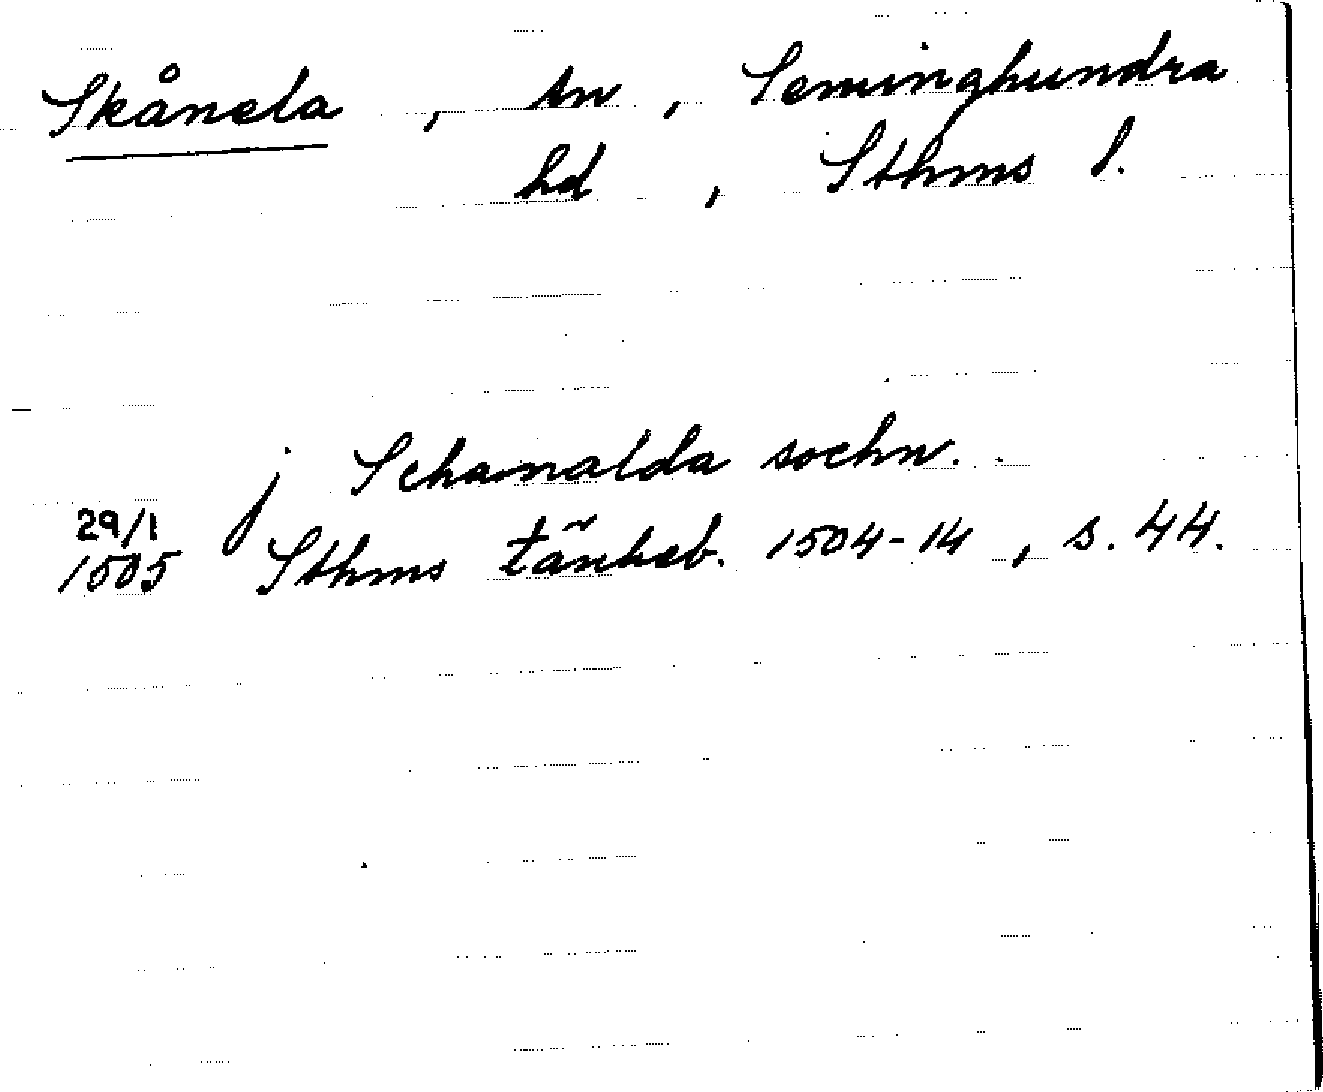 Skånela, sn, Seminghundra
hd, Sthms l.
j Schanalda sochn.
29/1
1505 Sthms tänkeb. 1504-14, s. 44.